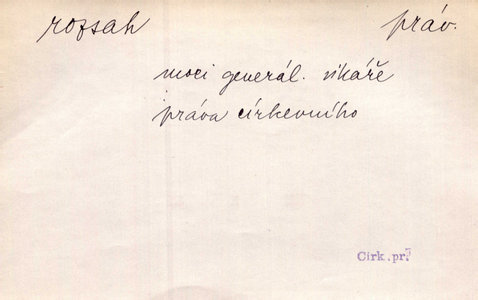 rozsah práv.
moci generál. vikáře
práva církevního
Cirk.pr.